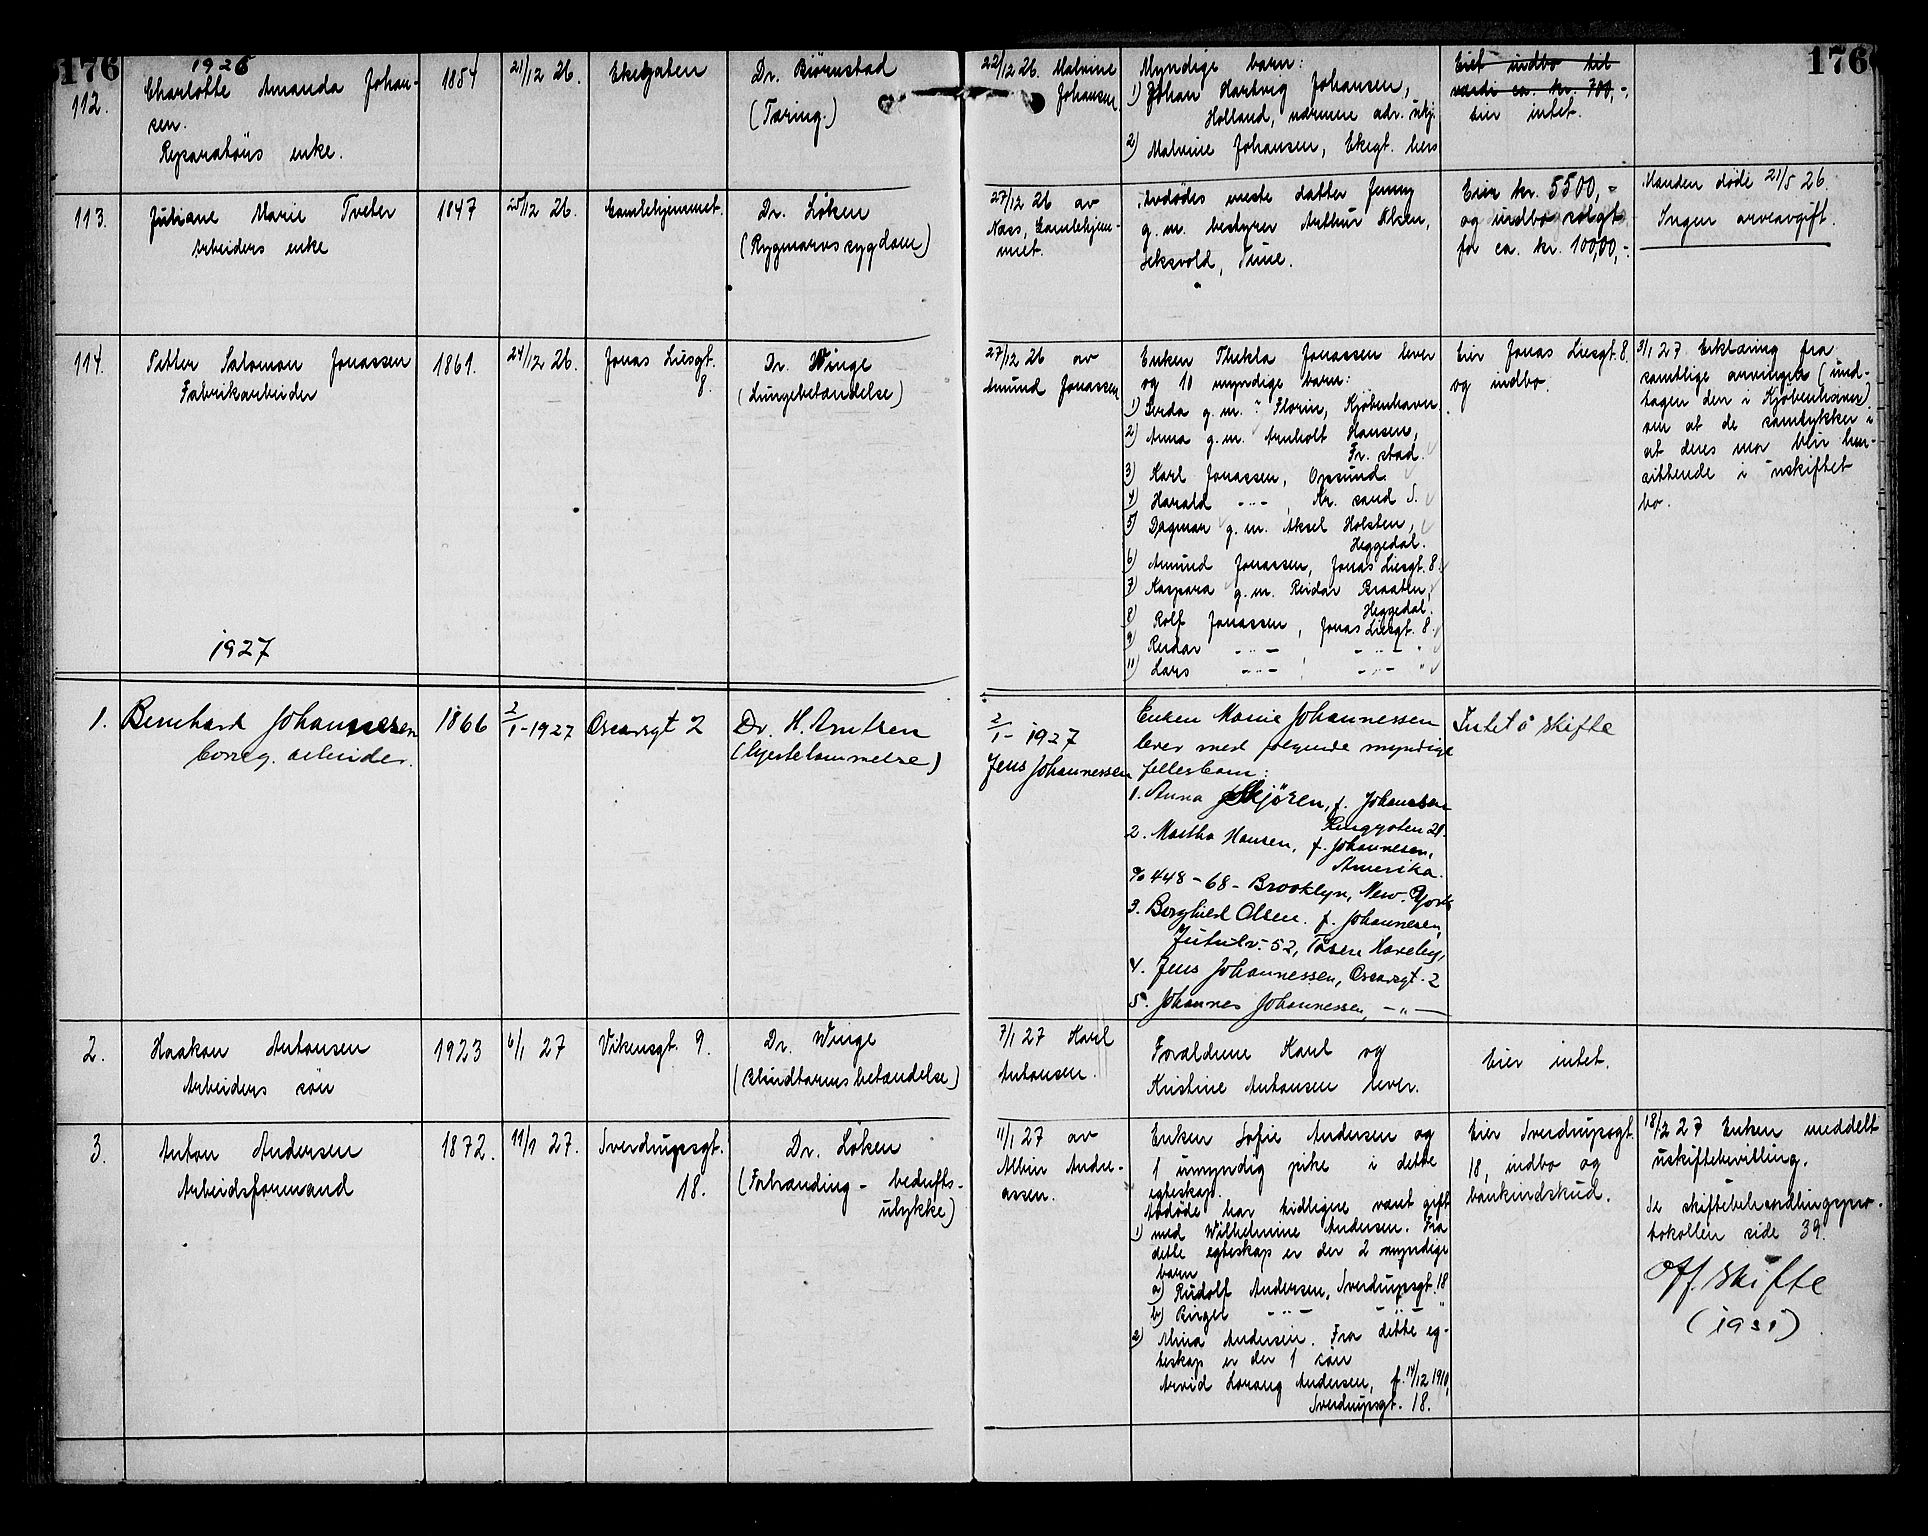 176
176
1926
112.
Charlotte Amanda Johan-
sen.
Reparatørs enke.
1854
21/12 26.
Ekegaten
Dr. Biørnstad
(Tæring.)
22/12 26. Malvine
Johansen
Myndige barn:
1) Johan Hartvig Johansen,
Holland, nærmere adr. ukj.
2) Malvine Johansen, Ekegt. hers
Eiet indbo til
værdi ca. kr. 700,-.
Eier intet.
113.
Juliane Marie Tveter
Arbeiders enke
1847
25/12 26.
Gamlehjemmet.
Dr. Løken
(Rygmarvssygdom)
27/12 26 av
Næss, Gamlehjem-
met.
Avdødes eneste datter Jenny
g.m. bestyrer Arthur Olsen,
, Tune.
Eier kr. 5500,-
og indbo solgt
for ca. kr. 1000,-.
Manden døde 21/5 26.
Ingen arveavgift.
114.
Petter Salomon Jonassen
Fabrikarbeider
1861.
24/12 26.
Jonas Liesgt.
8.
Dr. Winge
(Lungebetændelse)
27/12 26 av
Amund Jonassen
Enken Thekla Jonassen lever
og 10 myndige barn:
1) Gerda g.m. ? Florin, Kjøbenhavn.
2) Anna g.m. Arnholt Hansen,
Fr.stad.
3) Karl Jonassen,
4) Harald -"- , Kr.sand S.
5) Dagmar g.m. Aksel Holsten,
Heggedal.
6) Amund Jonassen, Jonas Liesgt. 8.
7) Kaspara g.m. Reidar Braaten,
Heggedal.
8) Rolf Jonassen, Jonas Liesgt. 8.
9) Reidar -"- -"- "
10) Lars -"- , -"- "
Eier Jonas Liesgt. 8.
og indbo.
3/1 27 Erklæring fra
samtlige arvinger (und-
tagen den i Kjøbenhavn)
om at de samtykker i
at deres mor blir hen-
sittende i uskiftet
bo.
1927
1.
Bernhard Johannessen
arbeider.
1866
2/1-1927
Oscarsgt 2
Dr. H. Arntsen
(hjertelammelse)
2/1-1927
Jens Johannessen
Enken Marie Johannessen
lever med følgende myndige
fellesbarn:
1. Anna Skjøren, f. Johannesen
Ringgaten 28.
2. Martha Hansen, f. Johannesen,
Amerika.
% 448-68- Brooklyn, New-York
3. Borghild Olsen. f. Johannesen,
Jutulv. 52, Tåsen Haveby,
4. Jens Johannessen, Oscarsgt. 2
5. Johannes Johannessen, -"-
Intet å skifte
2.
Haakon Antonsen
Arbeiders søn
1923
6/1 27
Vikensgt. 9.
Dr. Winge
(Blindtarmsbetændelse)
7/1 27 Karl
Antonsen.
Forældrene Karl og
Kristine Antonsen lever.
Eier intet.
3.
Anton Andersen
Arbeidsformand
1872.
11/1 27.
Sverdrupsgt.
18.
Dr. Løken
(Forbrænding - bedrifts-
ulykke)
11/1 27 av
Albin Andre-
assen.
Enken Sofie Andersen og
1 umyndig pike i dette
egteskap.
Avdøde har tidligere været gift
1) med Wilhelmine Andersen. Fra
dette egteskap er der 2 myndige
barn
a) Rudolf Andersen, Sverdrupsgt. 18
b) Birger -"- -"- "
2) Alma Andersen. Fra dette eg-
teskap er der 1 søn
Arvid Lorang Andersen, f. 14/12 1910,
Sverdrupsgt. 18.
Eier Sverdrupsgt.
18, indbo og
bankindskud.
18/2 27 Enken meddelt
uskiftebevilling.
Se skiftebehandlingspro-
tokollen side 39.
Off. skifte
(1931)